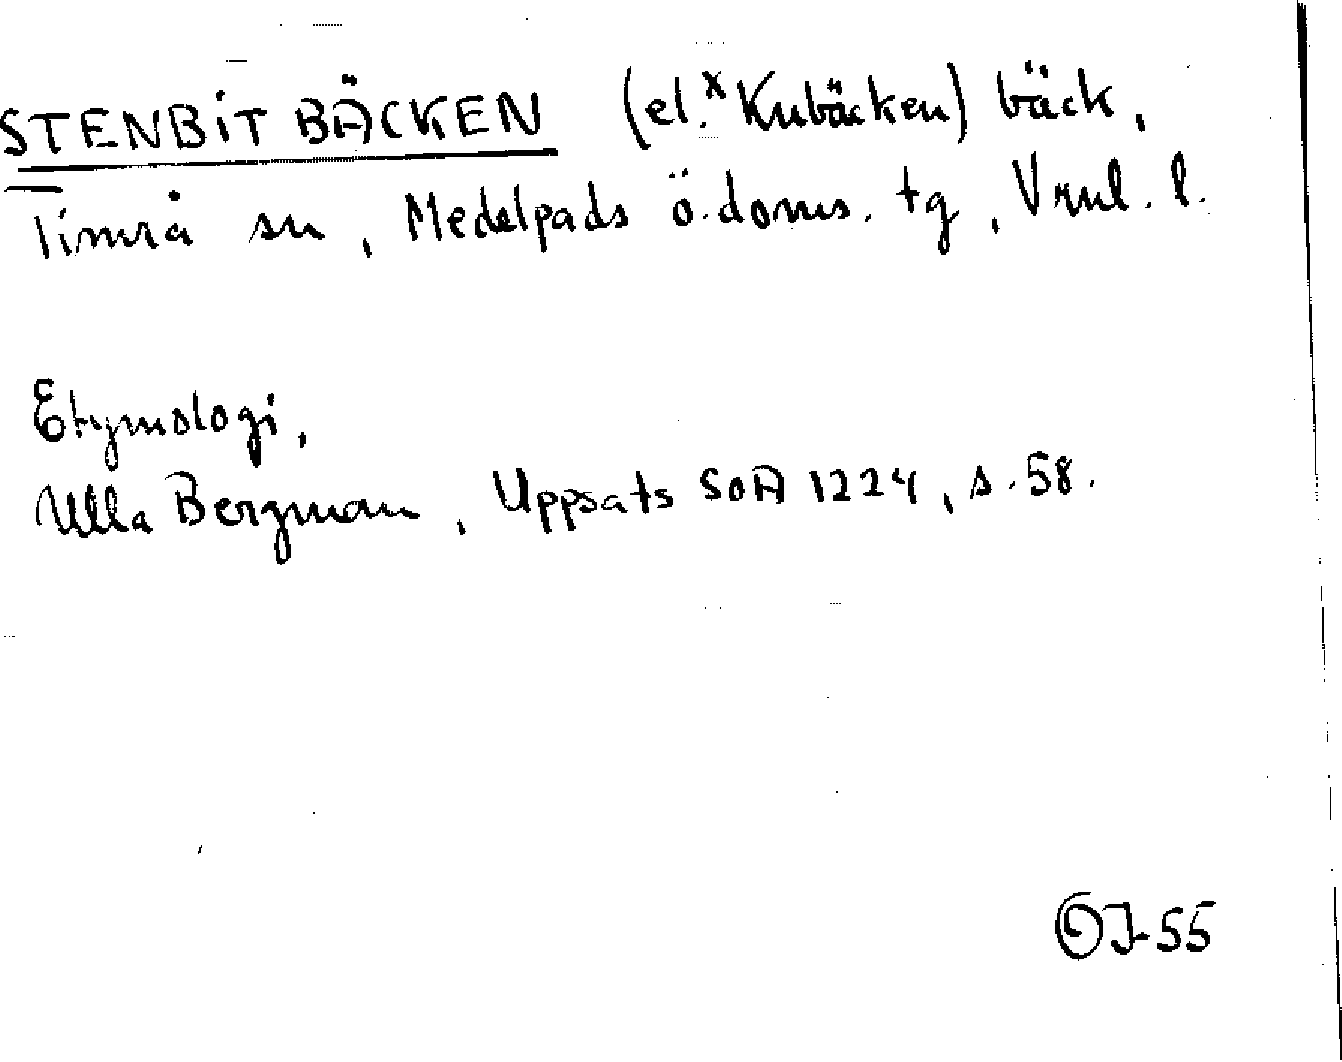 STENBiTBÄCKEN (el. x Kubäcken) bäck,
Timrå sn, Medelpads ö. doms. tg, Vnl. l.
Etymologi,
Ulla Bergman, Uppsats SOA 1224, s. 58.
OJ-55